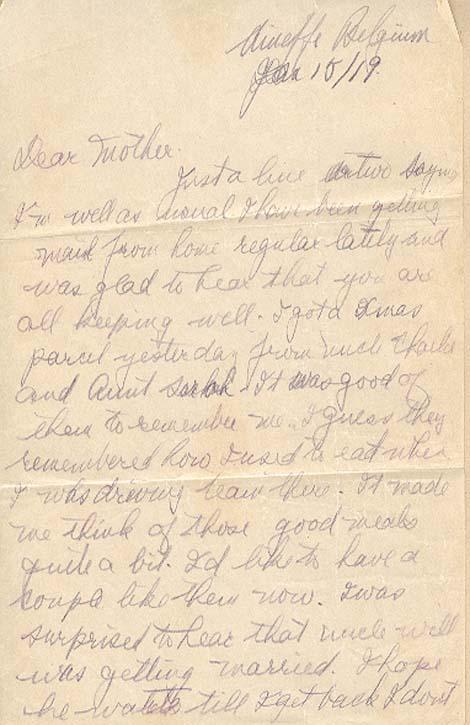 Aineffe Belgium
Jan 15/19.
Dear Mother.
Just a line or two saying
I'm well as usual I have been getting
mail from home regular lately and
was glad to hear that you are
all keeping well. I got a Xmas
parcel yesterday from uncle Charlie
and Aunt Sarah. It was good of
them to remember me. I guess they
remembered how I used to eat when
I was driving team there. It made
me think of those good meals
quite a bit. I'd like to have a
coupla like them now. I was
surprised to hear that uncle will
was getting married. I hope
he waits till I get back I don't